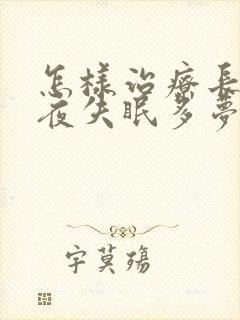 怎樣治療長
夜失眠多夢
字莫殤